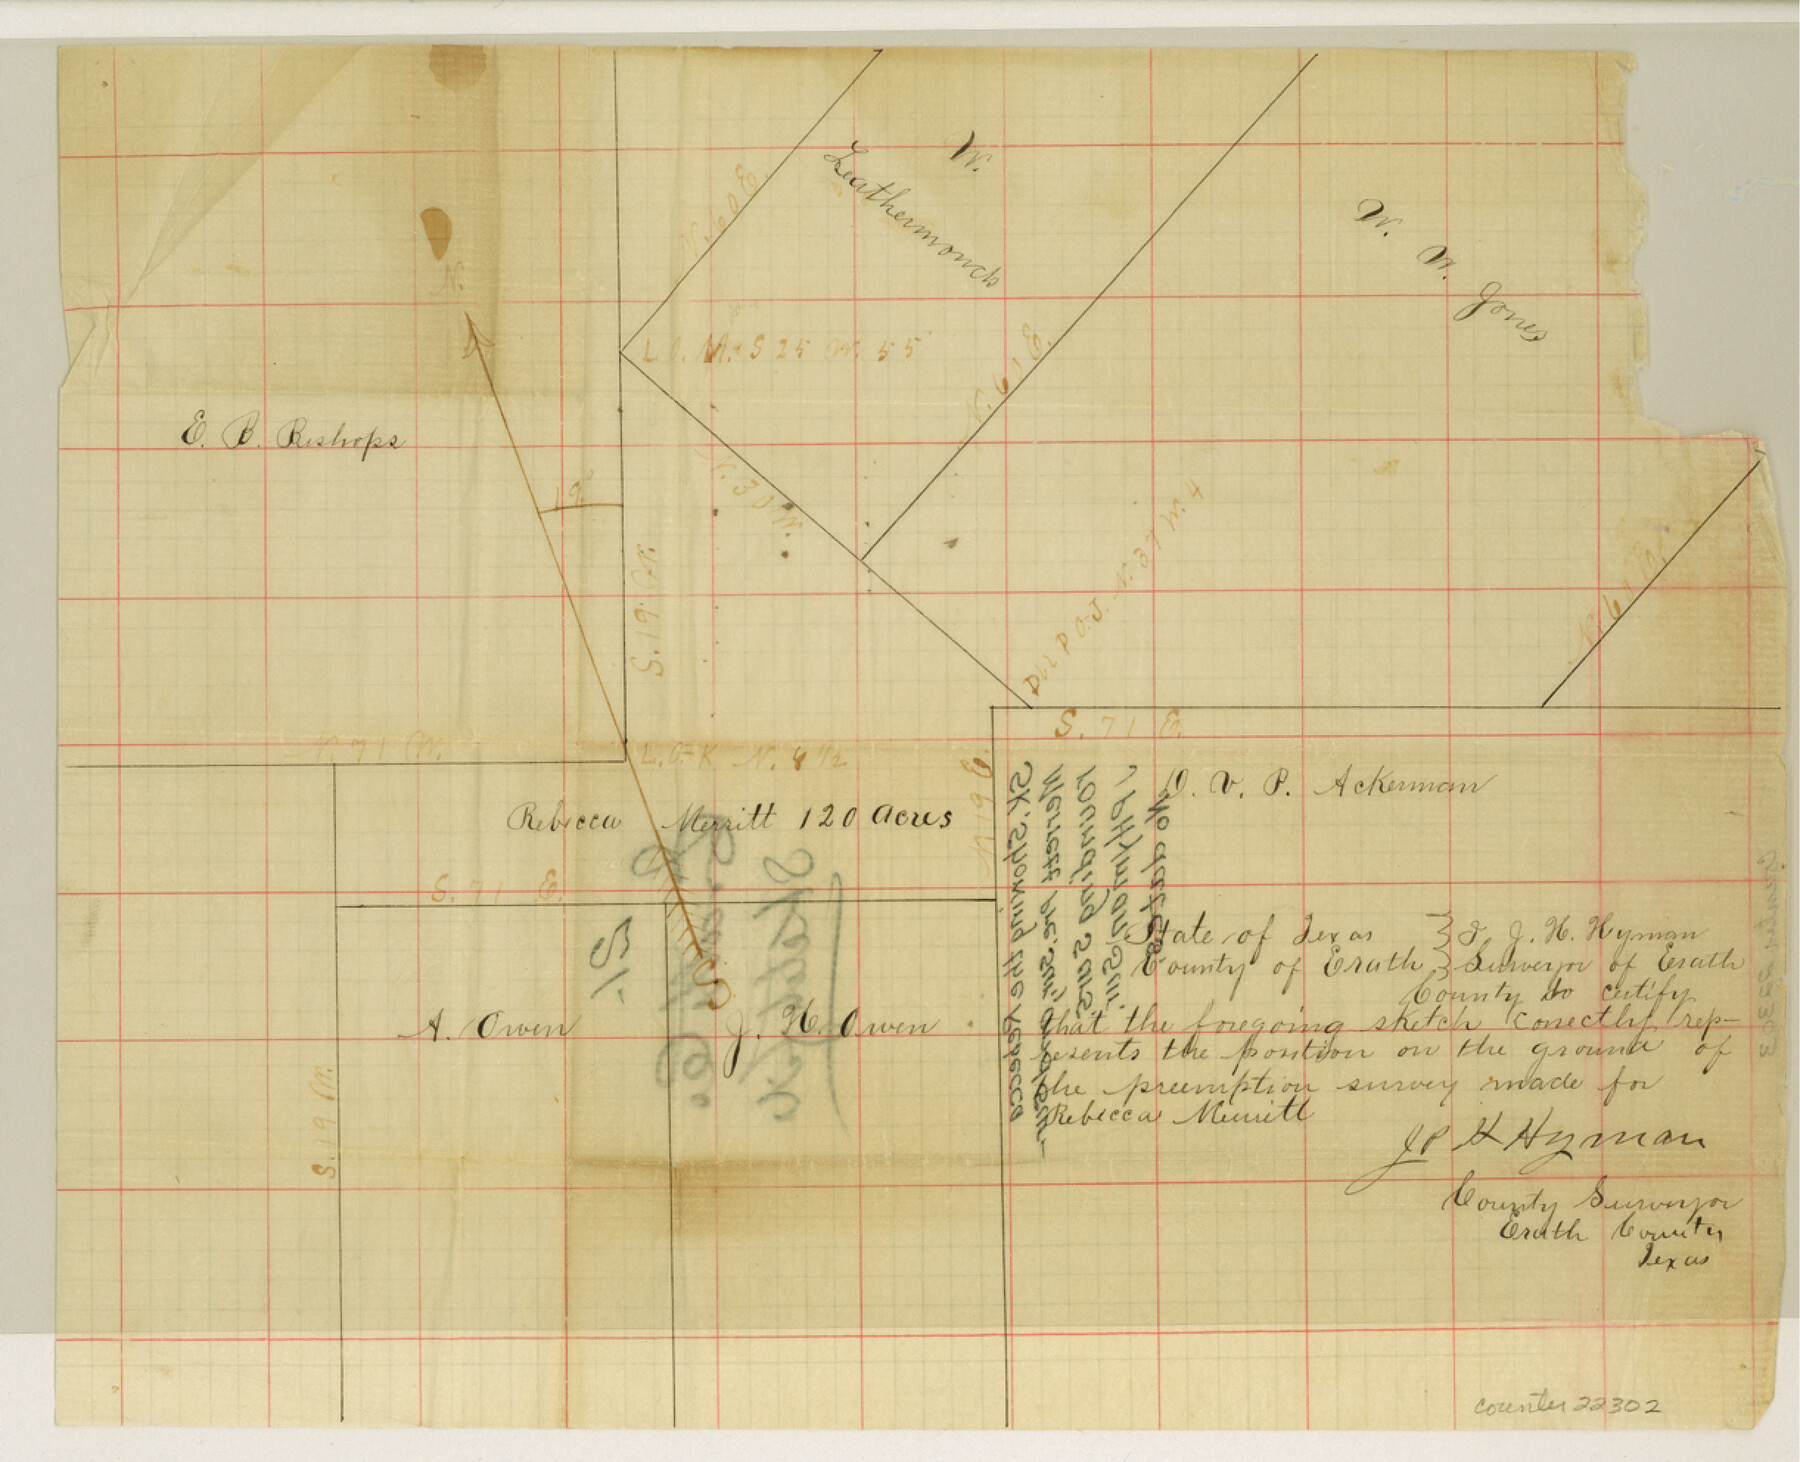 W.
Leathermonck
W. W. Jones
N. 60 E.
N.
L. O. M. S 25 W. 55
N. 61 E.
E. B. Bishops
19
N. 30 W.
S. 19 W.
P. O. J. N. 37 W. 4
N. 61 E.
S. 71 E.
N 71 W.
L. O. K. N. 8 1/2
N 19 E.
D. V. P. Ackerman
Rebecca Merritt 120 Acres
S. 71 E.
State of Texas } I J. H. Hyman
County of Erath } Surveyor of Erath
County do certify
that the foregoing sketch correctly rep-
resents the position on the ground of
the preemption survey made for
Rebecca Merritt
J P H Hyman
County Surveyor
Erath County
Texas
A. Owen
J. H. Owen
S. 19 W.
S.
Sketch
Erath Co.
Sk. showing the Rebecca
surrounding
J P H Hyman Sur
counter 22302